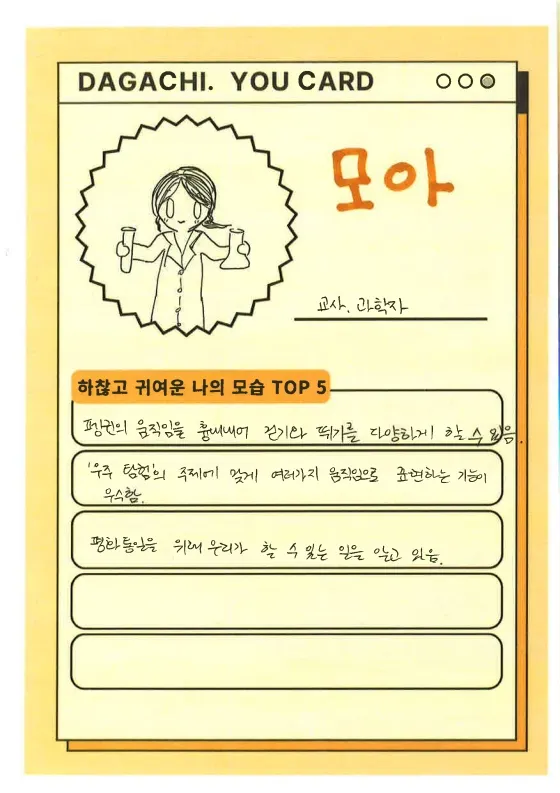 DAGACHI. YOU CARD
모아
교사, 과학자
하찮고 귀여운 나의 모습 TOP 5
펭귄의 움직임을 흉내내어 걷기와 뛰기를 다양하게 할 수 있음.
'우주 탐험'의 주제에 맞게 여러가지 움직임으로 표현하는 기능이
우수함.
평화통일을 위해 우리가 할 수 있는 일을 알고 있음.